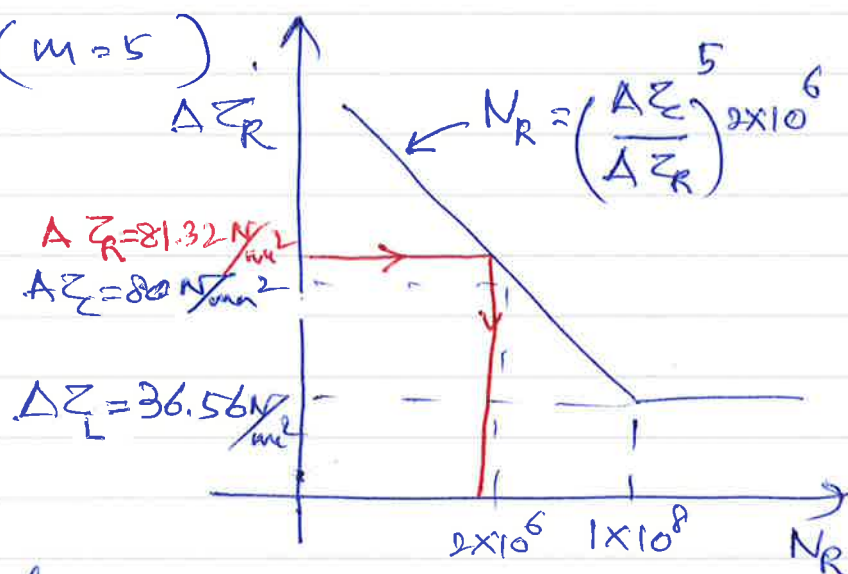 (m=5)
ΔτR
NR = (Δτc/ΔτR)^5 2×10^6
ΔτR=81.32 N/mm²
Δτc=80 N/mm²
ΔτL=36.56 N/mm²
2×10^6 1×10^8 NR